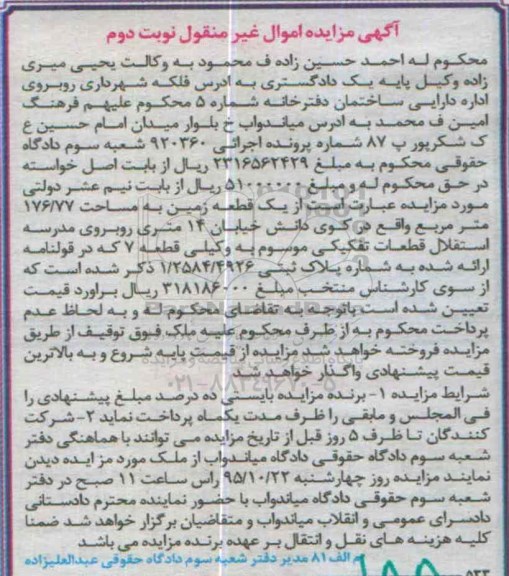 آگهی مزایده اموال غیر منقول نوبت دوم
محکوم له احمد حسین زاده ف محمود به وکالت یحیی میری
زاده وکیل پایه یک دادگستری به ادرس فلکه شهرداری روبروی
اداره دارایی ساختمان دفترخانه شماره ۵ محکوم علیهم فرهنگ
امین ف محمد به ادرس میاندواب خ بلوار میدان امام حسین ع
ک شکرپور پ ۸۷ شماره پرونده اجرائی ۹۲۰۳۶۰ شعبه سوم دادگاه
حقوقی محکوم به مبلغ ۲۳۱۶۵۶۲۴۲۹ ریال از بابت اصل خواسته
در حق محکوم له و مبلغ ۵۱۰۰۰۰۰۰ ریال از بابت نیم عشر دولتی
مورد مزایده عبارت است از یک قطعه زمین به مساحت ۱۷۶/۷۷
متر مربع واقع در کوی دانش خیابان ۱۴ متری روبروی مدرسه
استقلال قطعات تفکیکی موسوم به وکیلی قطعه ۷ که در قولنامه
ارائه شده به شماره پلاک ثبتی ۱/۲۵۸۴/۴۹۲۶ ذکر شده است که
از سوی کارشناس منتخب مبلغ ۳۱۸۱۸۶۰۰۰ ریال براورد قیمت
تعیین شده است باتوجه به تقاضای محکوم له و به لحاظ عدم
پرداخت محکوم به از طرف محکوم علیه ملک فوق توقیف از طریق
مزایده فروخته خواهد شد مزایده از قیمت پایه شروع و به بالاترین
قیمت پیشنهادی واگذار خواهد شد
۰۲۱-۸۸۳۴۹۶۷۰-۵
شرایط مزایده ۱- برنده مزایده بایستی ده درصد مبلغ پیشنهادی را
فی المجلس و مابقی را ظرف مدت یکماه پرداخت نماید ۲- شرکت
کنندگان تا ظرف ۵ روز قبل از تاریخ مزایده می توانند با هماهنگی دفتر
شعبه سوم دادگاه حقوقی دادگاه میاندواب از ملک مورد مزایده دیدن
نمایند مزایده روز چهارشنبه ۹۵/۱۰/۲۲ راس ساعت ۱۱ صبح در دفتر
شعبه سوم حقوقی دادگاه میاندواب با حضور نماینده محترم دادستانی
دادسرای عمومی و انقلاب میاندواب و متقاضیان برگزار خواهد شد ضمنا
کلیه هزینه های نقل و انتقال بر عهده برنده مزایده می باشد
م الف ۸۱ مدیر دفتر شعبه سوم دادگاه حقوقی عبدالعلیزاده
۵۳۳